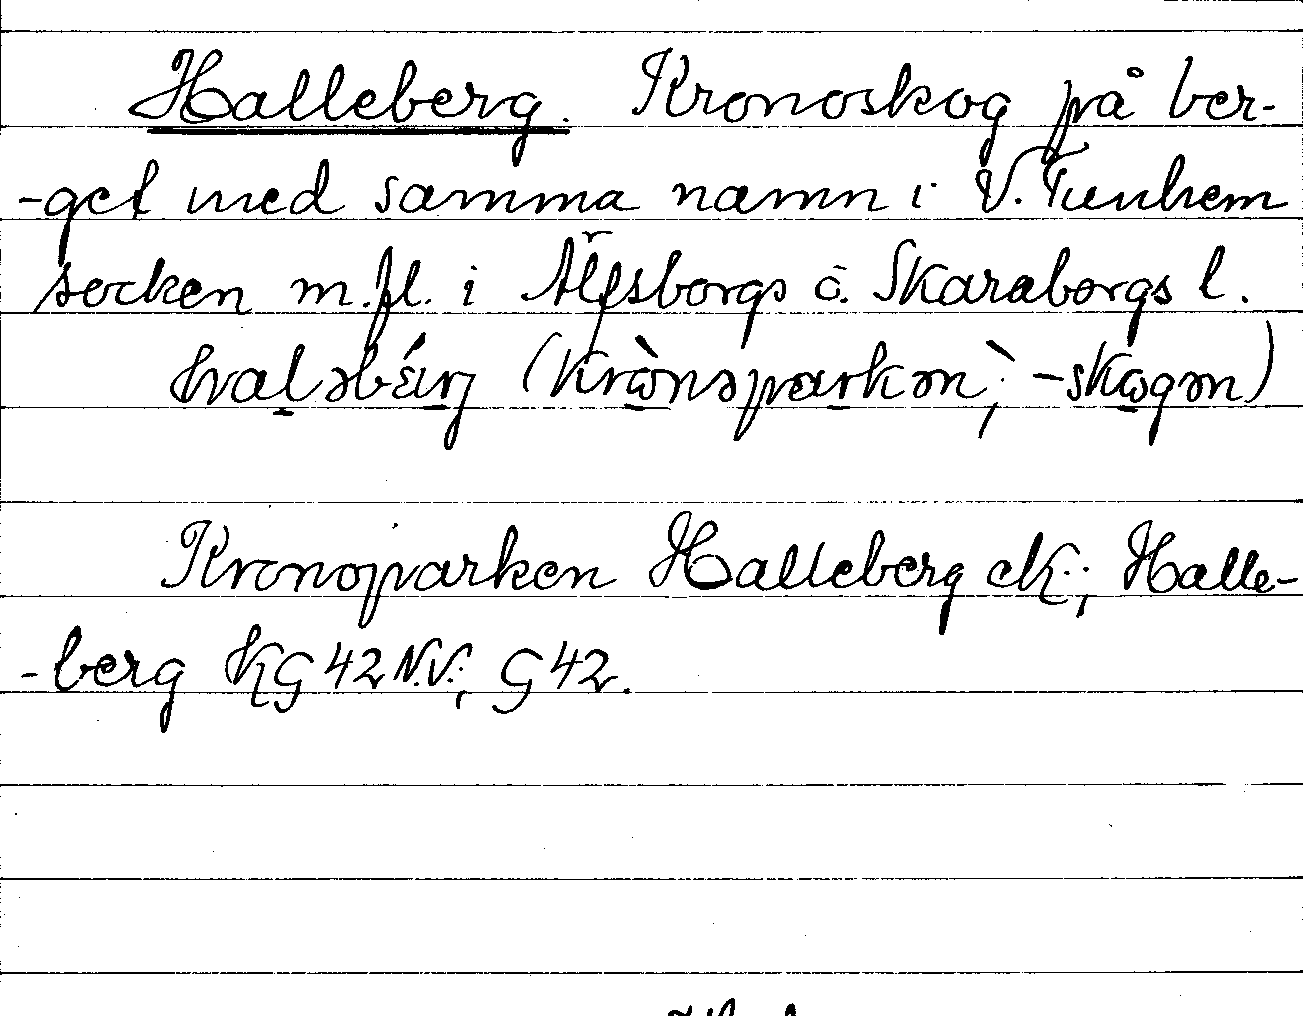 Halleberg. Kronoskog på ber-
-get med samma namn i V. Tunhem
socken m.fl. i Älfsborgs o. Skaraborgs l.
halǝbærj (krònsparkǝn; -skogǝn)
Kronoparken Halleberg eK.; Halle-
-berg KG42N.V.; G42.